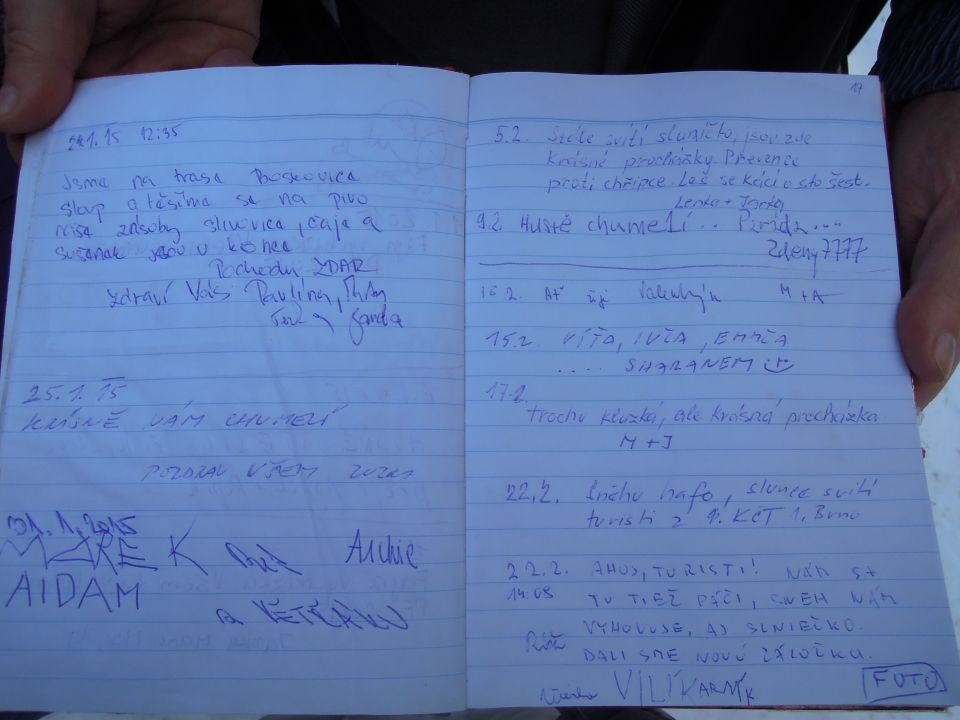 24.1.15 12:35
Jsme na trasa Boskovica
slap a těšíma se na pivo
naše zásoby slivovica, čaje a
sušenak jsou u konca
Pochodu ZDAR
Zdraví Vás Pavlína,
Janda
25.1.15
KRÁSNĚ NÁM CHUMELÍ
POZDRAV VŠEM
31.1.2015
MAREK
Archie
AIDAM
17
5.2. Stále svítí sluníčko, jsou zde
krásné procházky Prevence
proti chřipce. Les se kácí o sto šest.
Lenka + Jarka
9.2. Hustě chumelí .. Paráda ....
Zdeny7777
15.2. Ať žije Valentýn M+A
15.2. VÍŤA, IVČA, EMMČA
.... SHARANEM
17.2.
Trochu kluzká, ale krásná procházka.
M+J
22.2. Sněhu hafo, slunce svítí
turisti z KČT 1, Brno
22.2. AHOJ, TURISTI! NÁM SA
14:08 TU TIEŽ PÁČI, SNEH NÁM
VYHOVUJE, AJ SLNIEČKO.
DALI SME NOVÚ ZÁLOŽKU.
FOTO